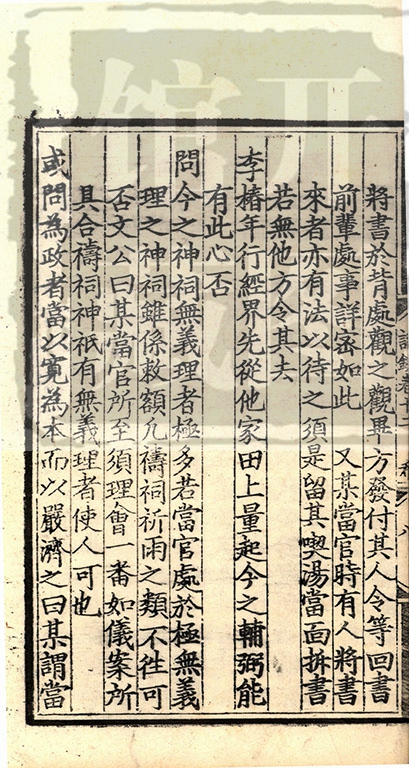 將書於背處觀之觀畢方發付其人令等回書
前輩處事詳宻如此　又某當官時有人將書
來者亦有法以待之須是留其喫湯當面拆書
若無他方令其去
李椿年行經界先從他家田上量起今之輔弼能
有此心否
問今之神祠無義理者極多若當官處於極無義
理之神祠雖係敕額凡禱祠祈雨之類不徃可
否文公曰某當官所至須理會一番如儀案所
具合禱祠神祇有無義理者使人可也
或問為政者當以寛為本而以嚴濟之曰某謂當